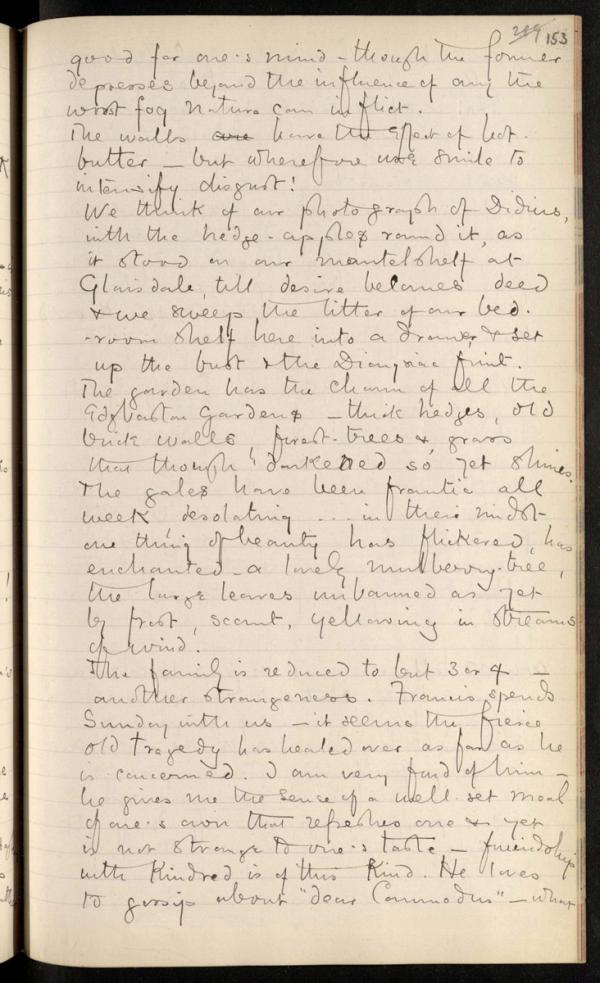 289 153
good for one's mind – though the former
depresses beyond the influence of any the
worst fog nature can inflict.
The walls are have the effect of hot-
butter – but wherefore use smile to
intensify disgust!
We think of our photograph of Didius,
with the hedge-apples round it, as
it stood on our mantelshelf at
Glaisdale, till desire becomes deed
& we sweep the litter of our bed-
-room shelf here into a drawer & set
up the bust & the Dionysiac fruit.
The garden has the charm of all the
Edgbaston Gardens – thick hedges, old
brick walls, forest-trees & grass
that though 'darkened so' yet shines.
The gales have been frantic all
week desolating ... in their midst
one thing of beauty has flickered, has
enchanted – a lovely mulberry-tree,
the large leaves unbanned as yet
by frost, scant, yellowing in streams
of wind.
The family is reduced to but 3 or 4 –
another strangeness. Francis spends
Sunday with us – it seems the fierce
old tragedy has healed over as far as he
is concerned. I am very fond of him –
he gives me the sense of a well-set meal
of one's own that refreshes one & yet
is not strange to one's taste – friendship
with Kindred is of this Kind. He loves
to gossip about "dear Commodus" – what